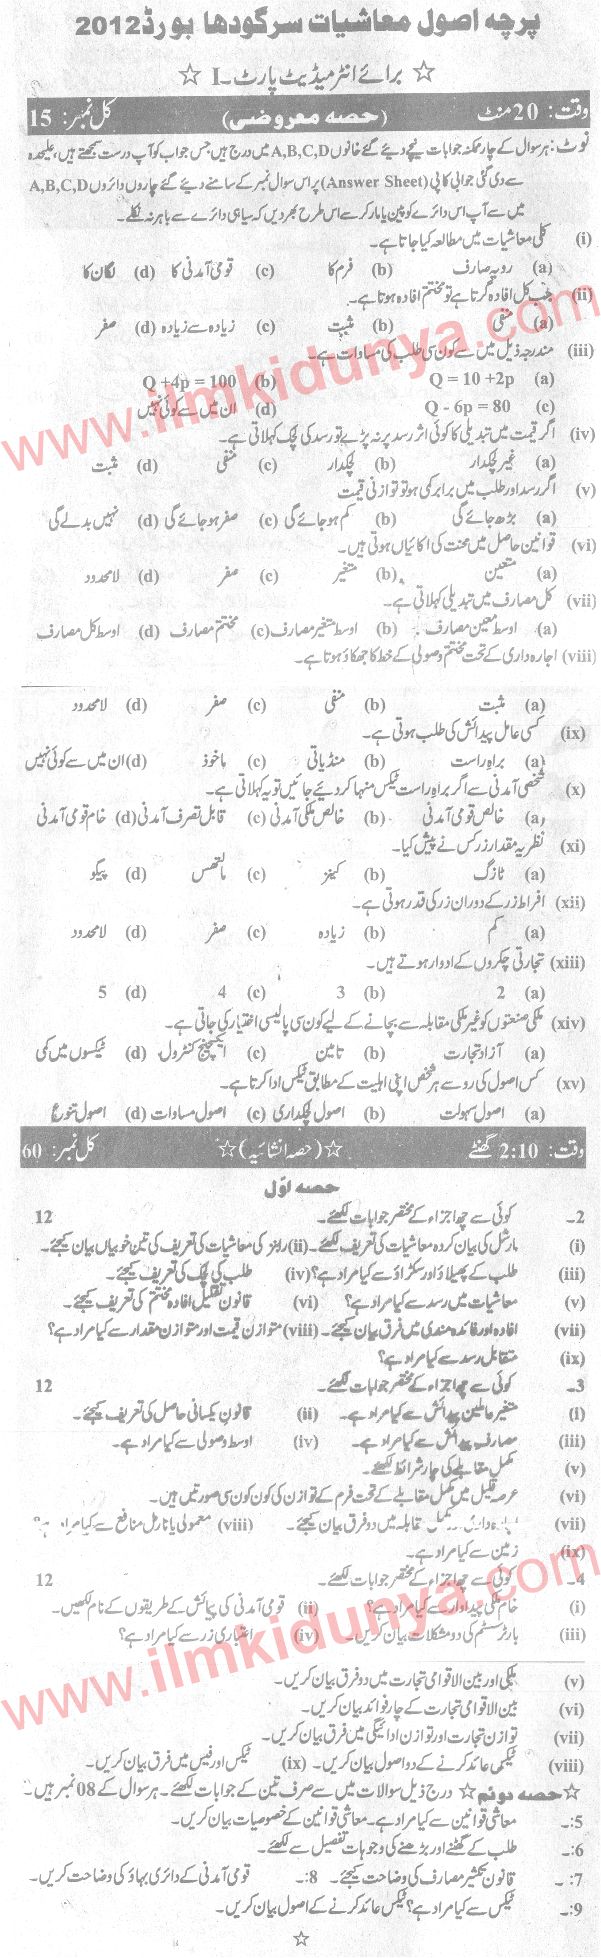 پرچہ اصول معاشیات سرگودھا بورڈ 2012
☆ برائے انٹرمیڈیٹ پارٹ۔I ☆
وقت: 20 منٹ (حصہ معروضی) کل نمبر: 15
نوٹ: ہر سوال کے چار ممکنہ جوابات نیچے دیئے گئے خانوں A,B,C,D میں درج ہیں جس جواب کو آپ درست سمجھتے ہیں، علیحدہ
سے دی گئی جوابی کاپی (Answer Sheet) پر اس سوال نمبر کے سامنے دیئے گئے چاروں دائروں A,B,C,D
میں سے آپ اس دائرے کو پین یا مارکر سے اس طرح بھر دیں کہ سیاہی دائرے سے باہر نہ نکلے۔
(i) کلی معاشیات میں مطالعہ کیا جاتا ہے۔
(a) رویہ صارف (b) فرم کا (c) قومی آمدنی کا (d) لگان کا
(ii) جب کل افادہ گرتا ہے تو مختتم افادہ ہوتا ہے۔
(a) منفی (b) مثبت (c) زیادہ سے زیادہ (d) صفر
(iii) مندرجہ ذیل میں سے کون سی طلب کی مساوات ہے۔
(a) Q = 10 +2p (b) Q +4p = 100
(c) Q - 6p = 80 (d) ان میں سے کوئی نہیں
(iv) اگر قیمت میں تبدیلی کا کوئی اثر رسد پر نہ پڑے تو رسد کی لچک کہلاتی ہے۔
(a) غیر لچکدار (b) لچکدار (c) منفی (d) مثبت
(v) اگر رسد اور طلب میں برابر کمی ہو تو توازنی قیمت
(a) بڑھ جائے گی (b) کم ہو جائے گی (c) صفر ہو جائے گی (d) نہیں بدلے گی
(vi) قوانین حاصل میں محنت کی اکائیاں ہوتی ہیں۔
(a) متعین (b) متغیر (c) صفر (d) لامحدود
(vii) کل مصارف میں تبدیلی کہلاتی ہے۔
(a) اوسط معین مصارف (b) اوسط متغیر مصارف (c) مختتم مصارف (d) اوسط کل مصارف
(viii) اجارہ داری کے تحت مختتم وصولی کے خط کا جھکاؤ ہوتا ہے۔
(a) مثبت (b) منفی (c) صفر (d) لامحدود
(ix) کسی عامل پیدائش کی طلب ہوتی ہے۔
(a) براہ راست (b) منڈیاتی (c) ماخوذ (d) ان میں سے کوئی نہیں
(x) شخصی آمدنی سے اگر براہ راست ٹیکس منہا کر دیئے جائیں تو یہ کہلاتی ہے۔
(a) خالص قومی آمدنی (b) خالص ملکی آمدنی (c) قابل تصرف آمدنی (d) خام قومی آمدنی
(xi) نظریہ مقدار زر کس نے پیش کیا۔
(a) ٹازگ (b) کینز (c) مالتھس (d) پیگو
(xii) افراط زر کے دوران زر کی قدر ہوتی ہے۔
(a) کم (b) زیادہ (c) صفر (d) لامحدود
(xiii) تجارتی چکروں کے ادوار ہوتے ہیں۔
(a) 2 (b) 3 (c) 4 (d) 5
(xiv) ملکی صنعتوں کو غیر ملکی مقابلہ سے بچانے کے لیے کون سی پالیسی اختیار کی جاتی ہے۔
(a) آزاد تجارت (b) تامین (c) ایکسچینج کنٹرول (d) ٹیکسوں میں کمی
(xv) کس اصول کی رو سے ہر شخص اپنی اہلیت کے مطابق ٹیکس ادا کرتا ہے۔
(a) اصول سہولت (b) اصول لچکداری (c) اصول مساوات (d) اصول تنوع
وقت: 2:10 گھنٹے ☆(حصہ انشائیہ)☆ کل نمبر: 60
حصہ اوّل
2۔ کوئی سے چھ اجزاء کے مختصر جوابات لکھئے۔ 12
(i) مارشل کی بیان کردہ معاشیات کی تعریف لکھئے۔ (ii) رابنز کی معاشیات کی تعریف کی تین خوبیاں بیان کیجئے۔
(iii) طلب کے پھیلاؤ اور سکڑاؤ سے کیا مراد ہے؟ (iv) طلب کی لچک کی تعریف کیجئے۔
(v) معاشیات میں رسد سے کیا مراد ہے؟ (vi) قانون تقلیل افادہ مختتم کی تعریف کیجئے۔
(vii) افادہ اور فائدہ مندی میں فرق بیان کیجئے۔ (viii) متوازن قیمت اور متوازن مقدار سے کیا مراد ہے؟
(ix) متقابل رسد سے کیا مراد ہے؟
3۔ کوئی سے چھ اجزاء کے مختصر جوابات لکھئے۔ 12
(i) متغیر عاملین پیدائش سے کیا مراد ہے۔ (ii) قانون یکسانی حاصل کی تعریف کیجئے۔
(iii) مصارف پیدائش سے کیا مراد ہے۔ (iv) اوسط وصولی سے کیا مراد ہے۔
(v) مکمل مقابلے کی چار شرائط لکھئے۔
(vi) عرصہ قلیل میں مکمل مقابلے کے تحت فرم کے توازن کی کون کون سی صورتیں ہیں۔
(vii) مقابلہ میں دو فرق بیان کیجئے۔ (viii) معمولی یا نارمل منافع سے کیا مراد ہے۔
(ix) زمین سے کیا مراد ہے۔
4۔ کوئی سے چھ اجزاء کے مختصر جوابات لکھئے۔ 12
(i) خام ملکی پیداوار سے کیا مراد ہے؟ (ii) قومی آمدنی کی پیمائش کے طریقوں کے نام لکھیں۔
(iii) بارٹر سسٹم کی دو مشکلات بیان کریں۔ (iv) اعتباری زر سے کیا مراد ہے؟
(v) ملکی اور بین الاقوامی تجارت میں دو فرق بیان کریں۔
(vi) بین الاقوامی تجارت کے چار فوائد بیان کریں۔
(vii) توازن تجارت اور توازن ادائیگی میں فرق بیان کریں۔
(viii) ٹیکس عائد کرنے کے دو اصول بیان کریں۔ (ix) ٹیکس اور فیس میں فرق بیان کریں۔
☆ حصہ دوئم ☆ درج ذیل سوالات میں سے صرف تین کے جوابات لکھئے۔ ہر سوال کے 08 نمبر ہیں۔
5:۔ معاشی قوانین سے کیا مراد ہے۔ معاشی قوانین کے خصوصیات بیان کریں۔
6:۔ طلب کے گھٹنے اور بڑھنے کی وجوہات تفصیل سے لکھئے۔
7:۔ قانون تکثیر مصارف کی وضاحت کیجئے۔ 8:۔ قومی آمدنی کے دائری بہاؤ کی وضاحت کریں۔
9:۔ ٹیکس سے کیا مراد ہے؟ ٹیکس عائد کرنے کے اصول بیان کریں۔
☆
www.ilmkidunya.com
www.ilmkidunya.com